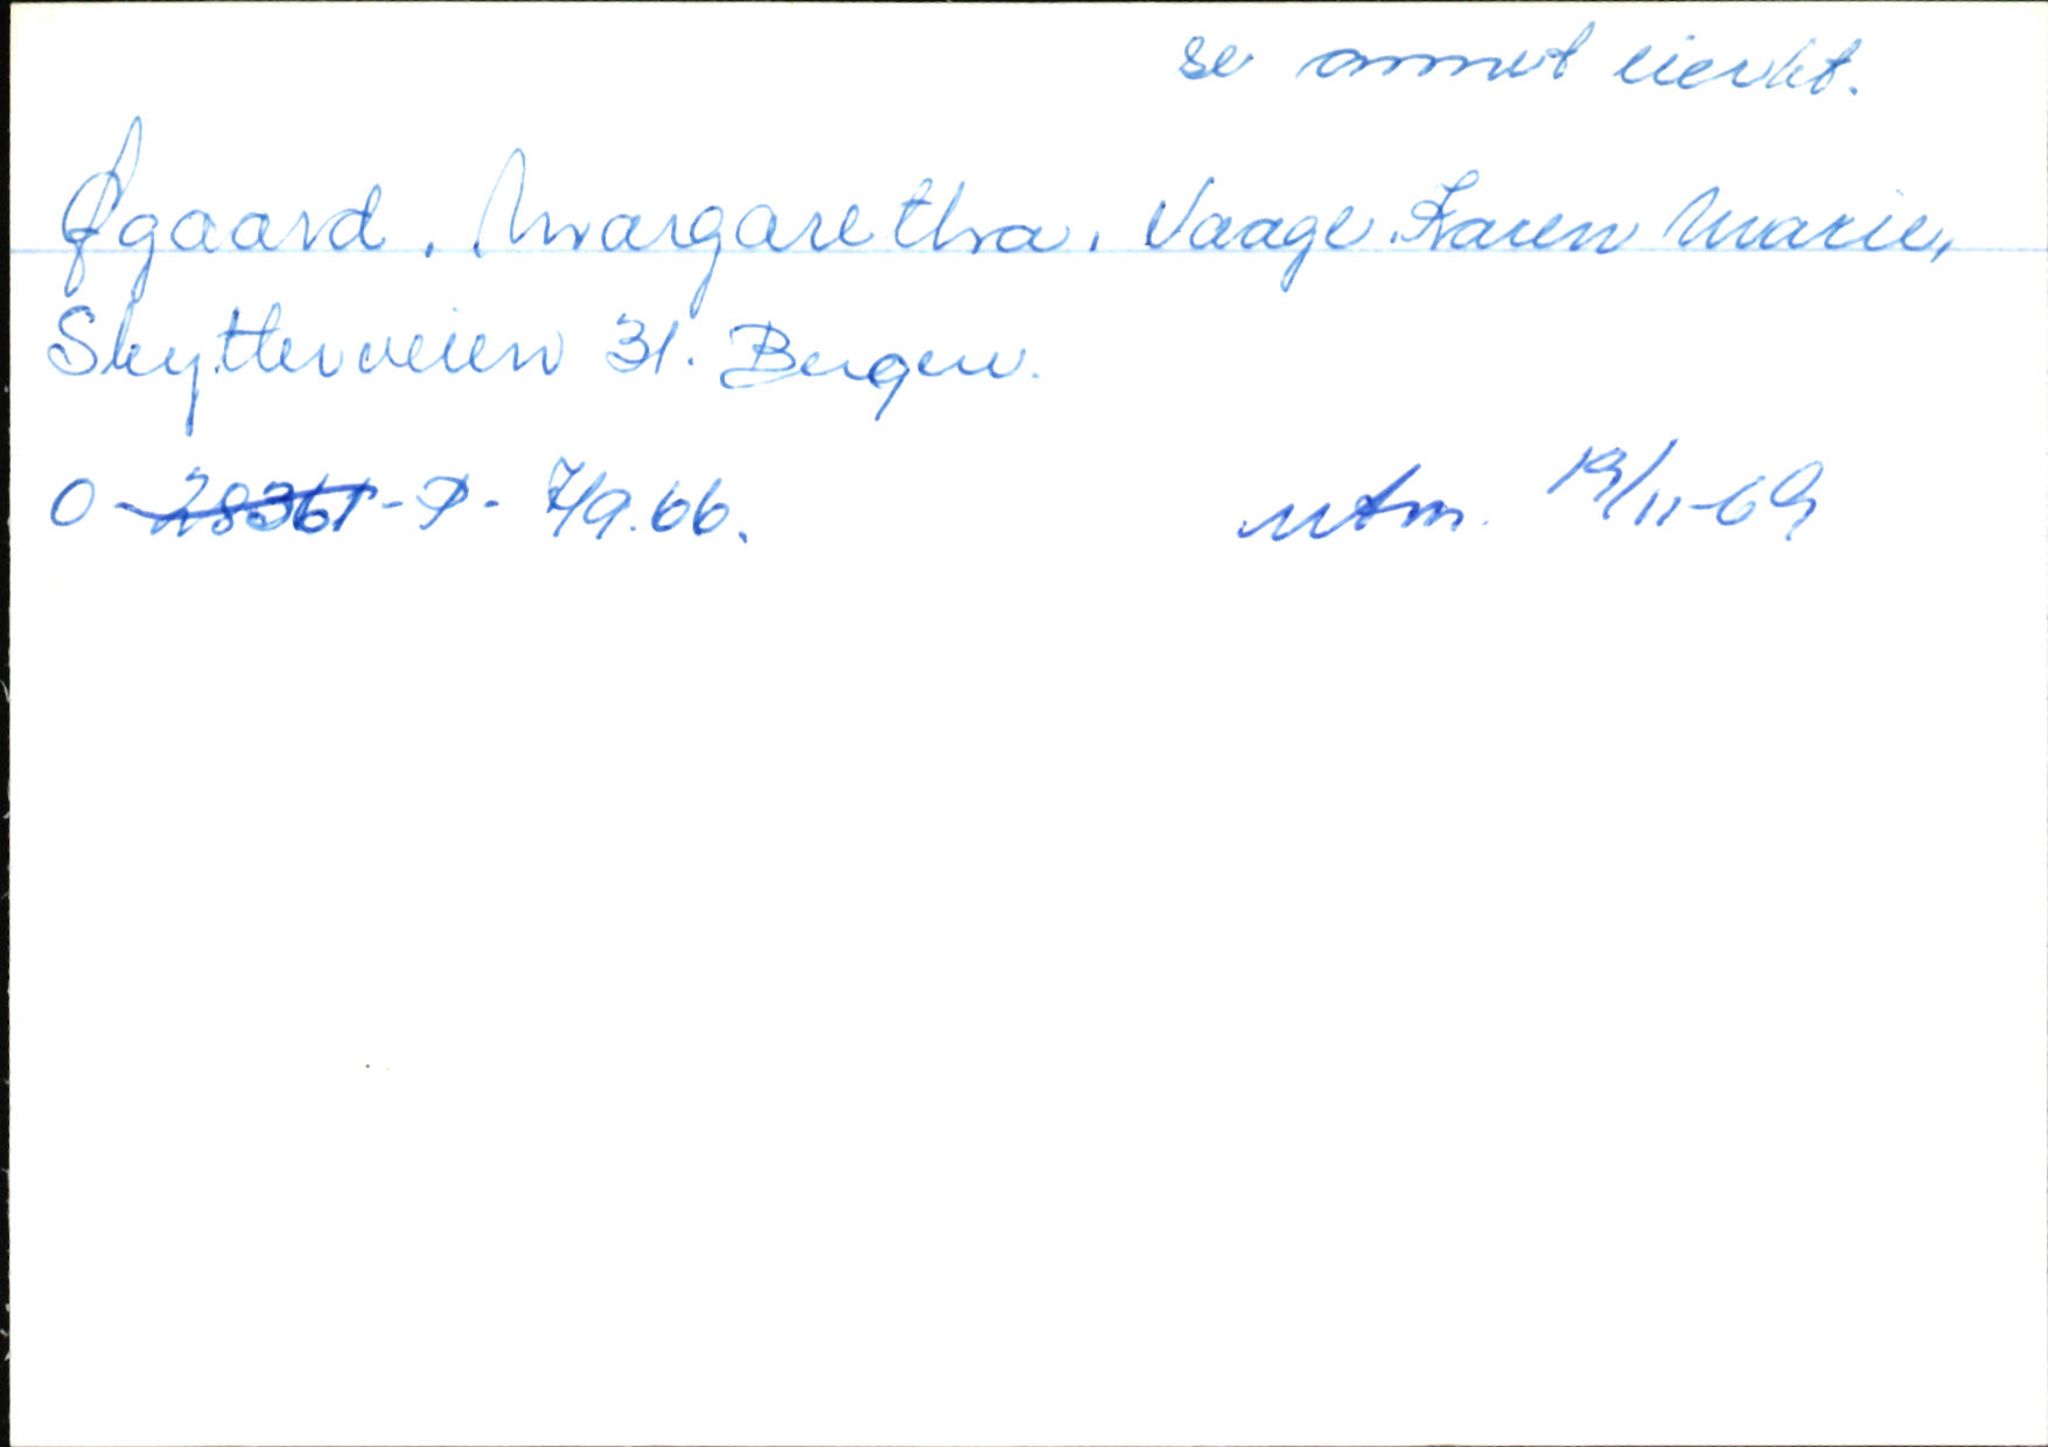 se annet eierkt.
Øgaard, Margaretha, Vaage Karen Marie,
Skytterveien 31. Bergen.
O-28361-P- 7/9.66. utm. 19/11-69